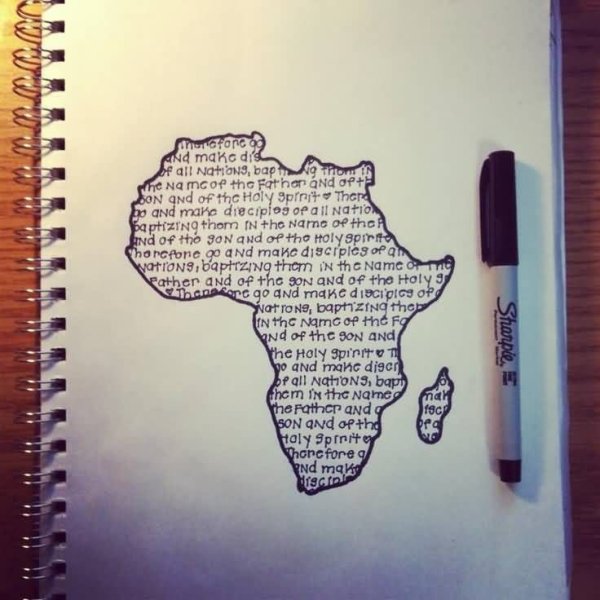 Therefore go
and make dis
of all Nations, bapti ng them in
the Name of the Father and of th
son and of the Holy Spirit ♥ There
go and make disciples of all Natio
baptizing them in the Name of the F
and of the son and of the Holy spirit
Therefore go and make disciples of all
Nations, baptizing them in the Name of the
Father and of the son and of the Holy S
♥ Therefore go and make disciples of a
Nations, baptizing them
in the Name of the Fa
and of the son and
the Holy Spirit ♥ T
go and make disci
of all Nations, bapt
them in the Name o
the Father and o
son and of the
Holy Spirit ♥
Therefore g
and make
discipl
go
mak
disci
of a
Sharpie